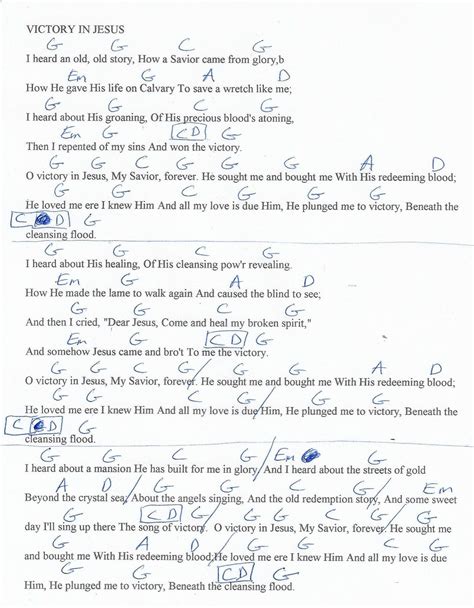 VICTORY IN JESUS
G G C G
I heard an old, old story, How a Savior came from glory,b
Em G A D
How He gave His life on Calvary To save a wretch like me;
G G C G
I heard about His groaning, Of His precious blood's atoning,
Em G C D G
Then I repented of my sins And won the victory.
G G G C G G A D
O victory in Jesus, My Savior, forever. He sought me and bought me With His redeeming blood;
G G C G G
He loved me ere I knew Him And all my love is due Him, He plunged me to victory, Beneath the
C D G
cleansing flood.
G G C G
I heard about His healing, Of His cleansing pow'r revealing.
Em G A D
How He made the lame to walk again And caused the blind to see;
G G C G
And then I cried, "Dear Jesus, Come and heal my broken spirit,"
Em G C D G
And somehow Jesus came and bro't To me the victory.
G G C G G G A D
O victory in Jesus, My Savior, forever. He sought me and bought me With His redeeming blood;
G G C G G G
He loved me ere I knew Him And all my love is due Him, He plunged me to victory, Beneath the
C D G
cleansing flood.
G G C G Em G
I heard about a mansion He has built for me in glory And I heard about the streets of gold
A D G G C G Em
Beyond the crystal sea; About the angels singing, And the old redemption story, And some sweet
G C D G G G C G G
day I'll sing up there The song of victory. O victory in Jesus, My Savior, forever. He sought me
G A D G G C G
and bought me With His redeeming blood; He loved me ere I knew Him And all my love is due
G G C D G
Him, He plunged me to victory, Beneath the cleansing flood.